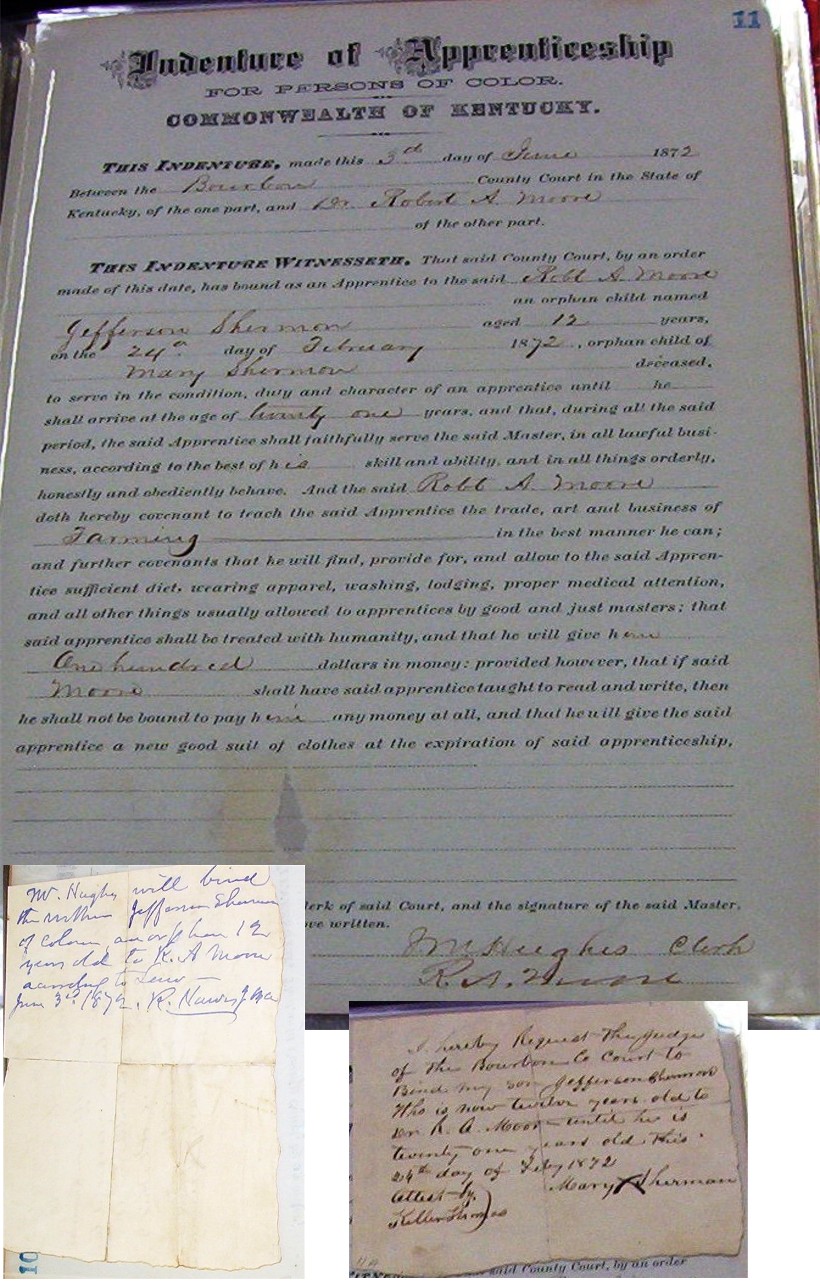 11
Indenture of Apprenticeship
FOR PERSONS OF COLOR.
COMMONWEALTH OF KENTUCKY.
THIS INDENTURE, made this 3d day of June 1872
Between the Bourbon County Court in the State of
Kentucky, of the one part, and Dr. Robert A. Moore
of the other part.
THIS INDENTURE WITNESSETH, That said County Court, by an order
made of this date, has bound as an Apprentice to the said Robt A. Moore
an orphan child named
Jefferson Shermon aged 12 years,
on the 24th day of February 1872, orphan child of
Mary Shermon deceased,
to serve in the condition, duty and character of an apprentice until he
shall arrive at the age of twenty one years, and that, during all the said
period, the said Apprentice shall faithfully serve the said Master, in all lawful busi-
ness, according to the best of his skill and ability, and in all things orderly,
honestly and obediently behave. And the said Robt A. Moore
doth hereby covenant to teach the said Apprentice the trade, art and business of
Farming in the best manner he can;
and further covenants that he will find, provide for, and allow to the said Appren-
tice sufficient diet, wearing apparel, washing, lodging, proper medical attention,
and all other things usually allowed to apprentices by good and just masters; that
said apprentice shall be treated with humanity, and that he will give him
One hundred dollars in money: provided however, that if said
Moore shall have said apprentice taught to read and write, then
he shall not be bound to pay him any money at all, and that he will give the said
apprentice a new good suit of clothes at the expiration of said apprenticeship,
lerk of said Court, and the signature of the said Master,
ove written.
Hughes Clerk
R. A. Moore
Mr. Hughes will bind
the within Jefferson Sherman
of colour, an orphan 12
years old to R. A Moore
according to Law —
June 3rd 1872. R.
10
I hereby Request The Judge
of The Bourbon Co Court to
Bind my son Jefferson Shermon
Who is now twelve years old to
Dr R. A. Moor until he is
twenty one years old this
24th day of Feby 1872
Mary X Sherman
Attest by
Keller Thomas
said County Court, by an order